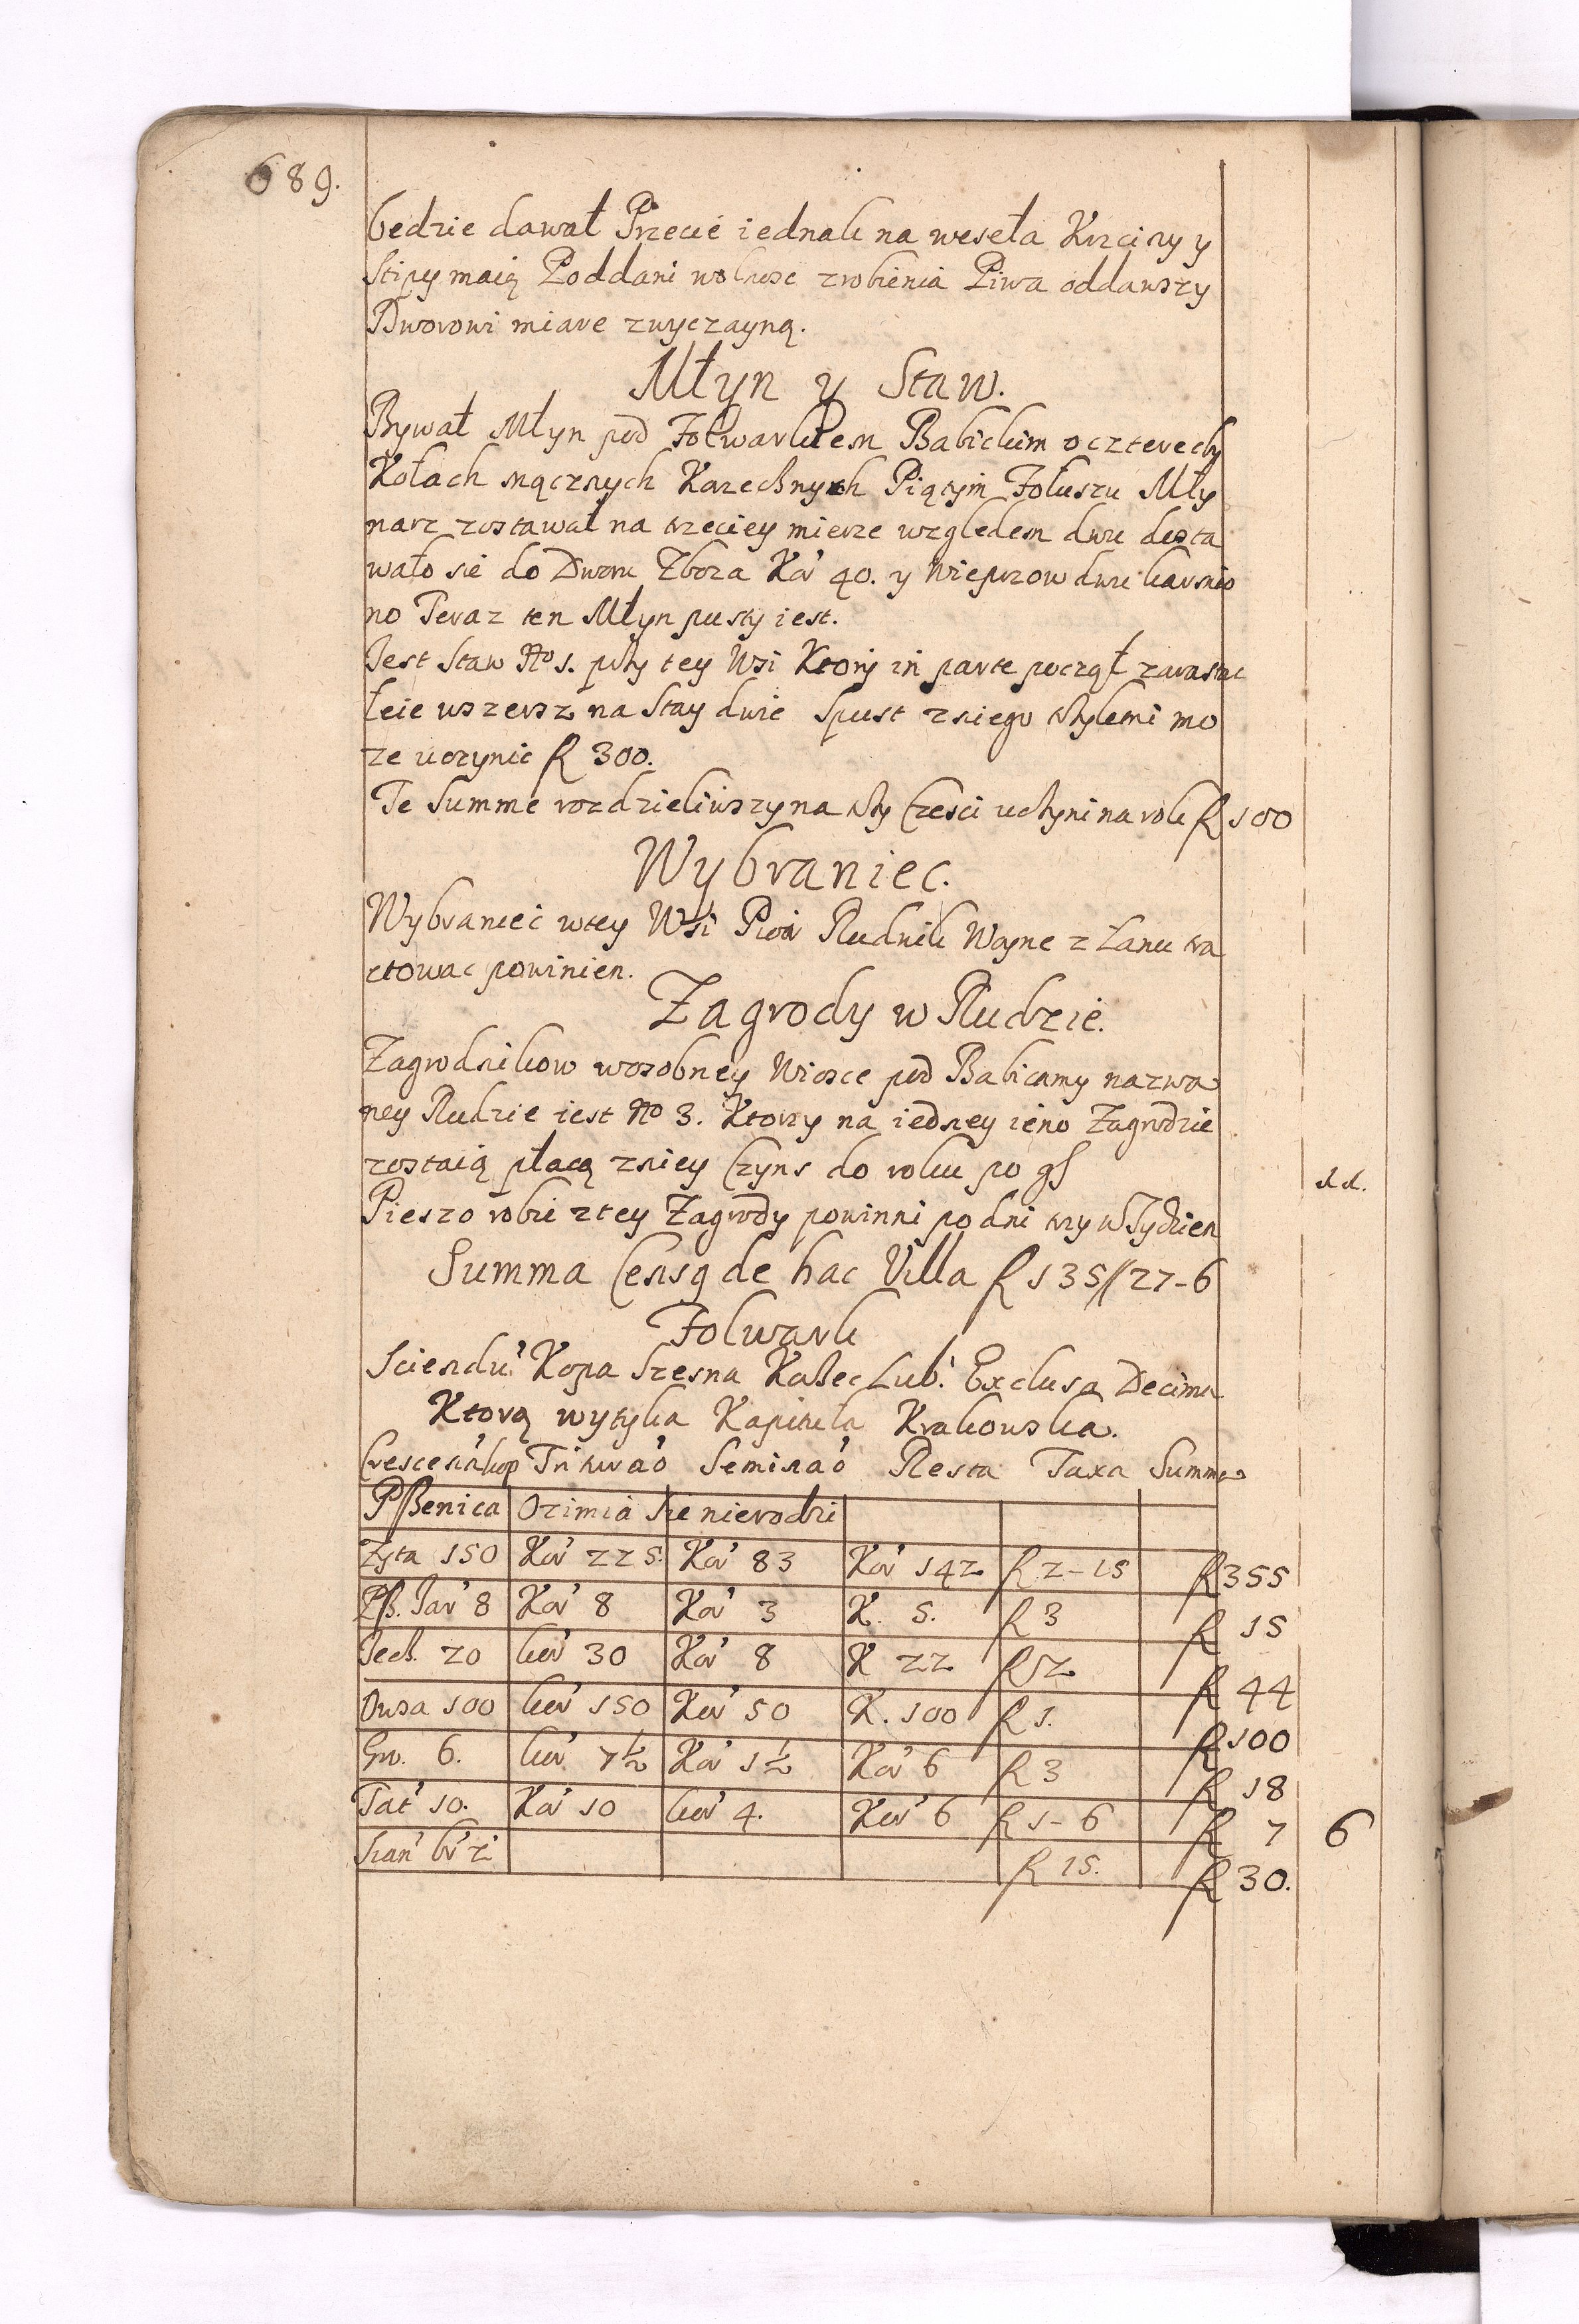 689.
bedzie dawał Przecie iednak na weseła Krzciny y
Stipy maią Poddani wolnosc zrobienia Piwa oddawszy
Dworowi miare zwyczayną.
Młyn y Staw.
Bywał Młyn pod Folwarkiem Babickim o czterech
Kołach mącznych Korzechnych Piątym Foluszu Mły
narz zostawał na trzeciey mierze względem dwu dosta
wało sie do Dworu Zboza Kor 40. y Wieprzow dwu karmio
no Teraz ten Młyn pusty iest.
Jest Staw No 1. przy tey Wsi Ktory in parte począł zarastac
wszersz na Stay dwie Spust z niego trzyletni mo
ze uczynic f 300.
Te Summe rozdzieliwszy na trzy Czesci uczyni na rok f 100
Wybraniec.
Wybraniec w tey Wsi Piotr Rudnik Woyne z Łanu tra
ctowac powinien.
Zagrody w Rudzie.
Zagrodnikow w osobney Wiosce pod Babicamy nazwa
ney Rudzie iest No 3. Ktorzy na iedney ieno Zagrodzie
zostaią płacą z niey Czyns do roku po gł
Pieszo robic z tey Zagrody powinni po dni trzy w Tydzien
Summa Censq de hac Villa f 135 // 27-6
Folwark
Sciendu Kopa Szesna Korzec Lub. Exclusa Decima
Ktorą wytyka Kapituła Krakowska.
Crescena kop Triturao Seminao Resta Taxa Summa
Pszenica Ozimia sie nierodzi
Zyta 150 Kor 225. Kor 83 Kor 142 f 2-15 f 355
Psz. Jar 8 Kor 8 Kor 3 K. 5. f 3 f 15
Jech. 20 kor 30 Kor 8 K 22 f 2 f 44
Owsa 100 kor 150 Kor 50 K. 100 f 1. f 100
Gro. 6. kor 7½ Kor 1½ Kor 6 f 3 f 18
Tat 10. Kor 10 kor 4. Kor 6 f 1-6 f 7 6
f 15. f 30.